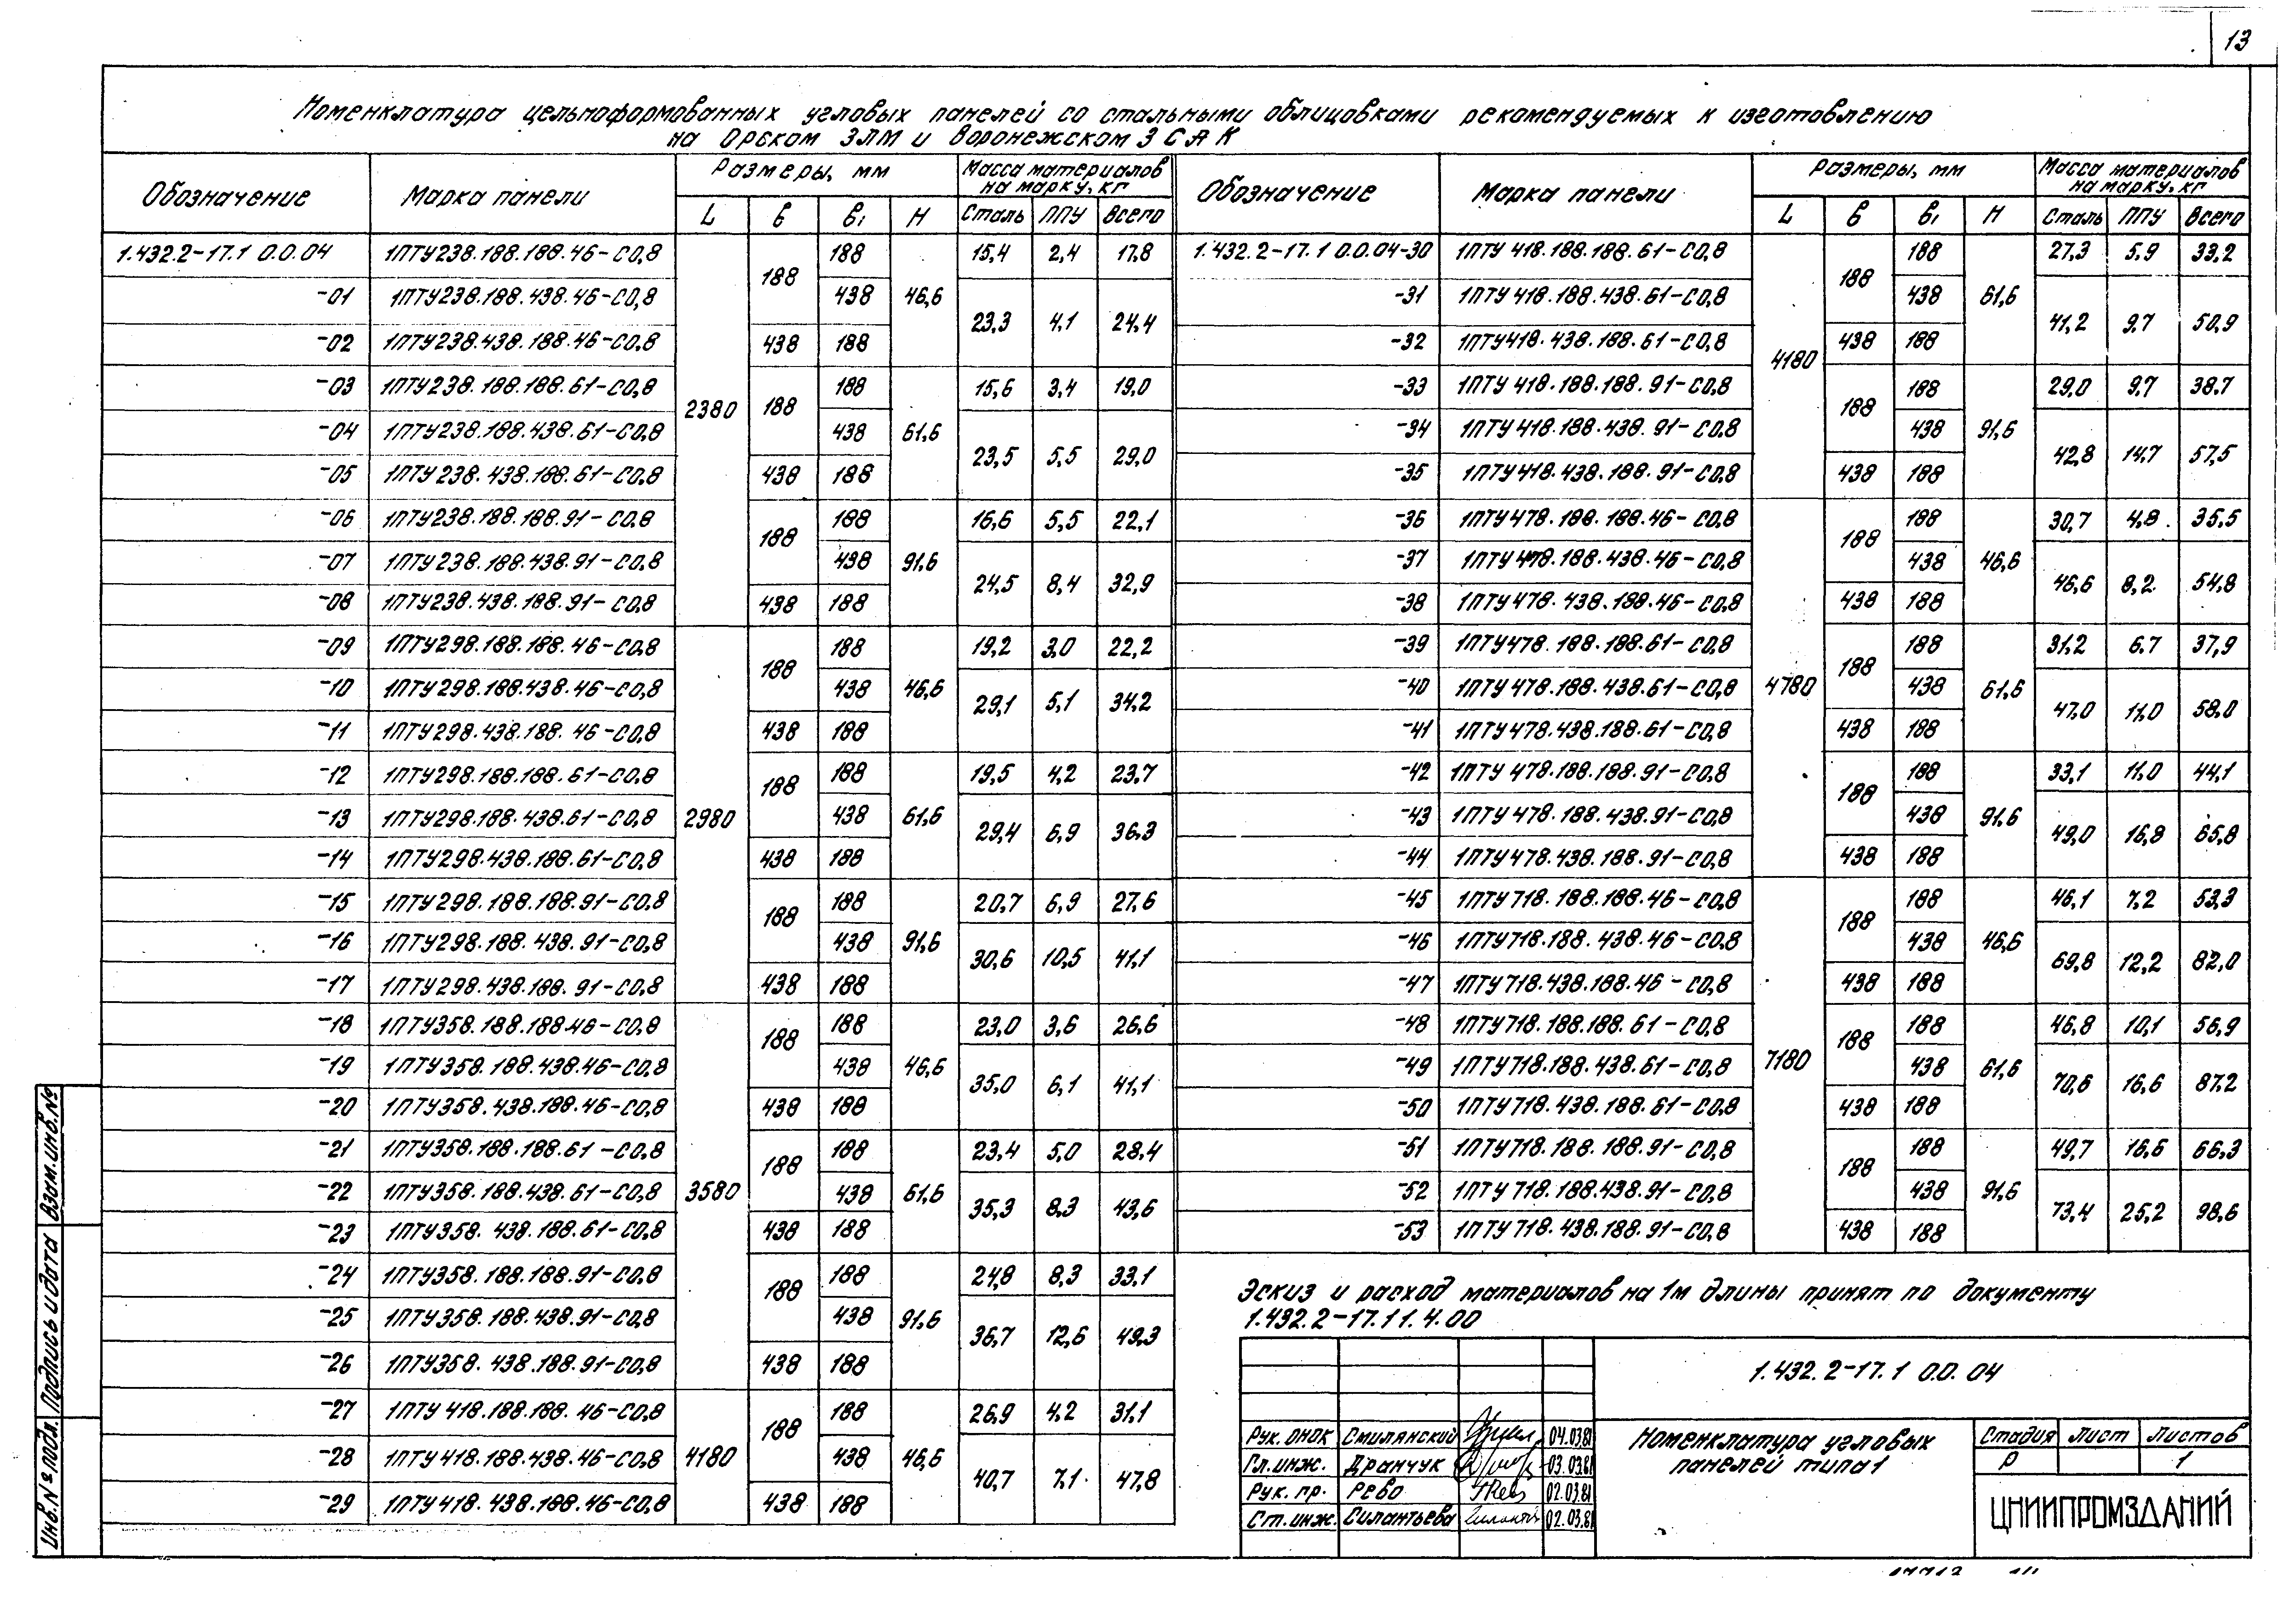 13
Номенклатура цельноформованных угловых панелей со стальными облицовками рекомендуемых к изготовлению
на Орском ЗЛМ и Воронежском ЗСАК
Обозначение Марка панели Размеры, мм Масса материалов на марку, кг
L б б₁ Н Сталь ППУ Всего
1.432.2-17.1 0.0.04 1ПТУ238.188.188.46-С0,8 2380 188 188 46,6 15,4 2,4 17,8
-01 1ПТУ238.188.438.46-С0,8 438 23,3 4,1 24,4
-02 1ПТУ238.438.188.46-С0,8 438 188
-03 1ПТУ238.188.188.61-С0,8 188 188 61,6 15,6 3,4 19,0
-04 1ПТУ238.188.438.61-С0,8 438 23,5 5,5 29,0
-05 1ПТУ238.438.188.61-С0,8 438 188
-06 1ПТУ238.188.188.91-С0,8 188 188 91,6 16,6 5,5 22,1
-07 1ПТУ238.188.438.91-С0,8 438 24,5 8,4 32,9
-08 1ПТУ238.438.188.91-С0,8 438 188
-09 1ПТУ298.188.188.46-С0,8 2980 188 188 46,6 19,2 3,0 22,2
-10 1ПТУ298.188.438.46-С0,8 438 29,1 5,1 34,2
-11 1ПТУ298.438.188.46-С0,8 438 188
-12 1ПТУ298.188.188.61-С0,8 188 188 61,6 19,5 4,2 23,7
-13 1ПТУ298.188.438.61-С0,8 438 29,4 6,9 36,3
-14 1ПТУ298.438.188.61-С0,8 438 188
-15 1ПТУ298.188.188.91-С0,8 188 188 91,6 20,7 6,9 27,6
-16 1ПТУ298.188.438.91-С0,8 438 30,6 10,5 41,1
-17 1ПТУ298.438.188.91-С0,8 438 188
-18 1ПТУ358.188.188.46-С0,8 3580 188 188 46,6 23,0 3,6 26,6
-19 1ПТУ358.188.438.46-С0,8 438 35,0 6,1 41,1
-20 1ПТУ358.438.188.46-С0,8 438 188
-21 1ПТУ358.188.188.61-С0,8 188 188 61,6 23,4 5,0 28,4
-22 1ПТУ358.188.438.61-С0,8 438 35,3 8,3 43,6
-23 1ПТУ358.438.188.61-С0,8 438 188
-24 1ПТУ358.188.188.91-С0,8 188 188 91,6 24,8 8,3 33,1
-25 1ПТУ358.188.438.91-С0,8 438 36,7 12,6 49,3
-26 1ПТУ358.438.188.91-С0,8 438 188
-27 1ПТУ418.188.188.46-С0,8 4180 188 188 46,6 26,9 4,2 31,1
-28 1ПТУ418.188.438.46-С0,8 438 40,7 7,1 47,8
-29 1ПТУ418.438.188.46-С0,8 438 188
Обозначение Марка панели Размеры, мм Масса материалов на марку, кг
L б б₁ Н Сталь ППУ Всего
1.432.2-17.1 0.0.04-30 1ПТУ418.188.188.61-С0,8 4180 188 188 61,6 27,3 5,9 33,2
-31 1ПТУ418.188.438.61-С0,8 438 41,2 9,7 50,9
-32 1ПТУ418.438.188.61-С0,8 438 188
-33 1ПТУ418.188.188.91-С0,8 188 188 91,6 29,0 9,7 38,7
-34 1ПТУ418.188.438.91-С0,8 438 42,8 14,7 57,5
-35 1ПТУ418.438.188.91-С0,8 438 188
-36 1ПТУ478.188.188.46-С0,8 4780 188 188 46,6 30,7 4,8 35,5
-37 1ПТУ478.188.438.46-С0,8 438 46,6 8,2 54,8
-38 1ПТУ478.438.188.46-С0,8 438 188
-39 1ПТУ478.188.188.61-С0,8 188 188 61,6 31,2 6,7 37,9
-40 1ПТУ478.188.438.61-С0,8 438 47,0 11,0 58,0
-41 1ПТУ478.438.188.61-С0,8 438 188
-42 1ПТУ478.188.188.91-С0,8 188 188 91,6 33,1 11,0 44,1
-43 1ПТУ478.188.438.91-С0,8 438 49,0 16,8 65,8
-44 1ПТУ478.438.188.91-С0,8 438 188
-45 1ПТУ718.188.188.46-С0,8 7180 188 188 46,6 46,1 7,2 53,3
-46 1ПТУ718.188.438.46-С0,8 438 69,8 12,2 82,0
-47 1ПТУ718.438.188.46-С0,8 438 188
-48 1ПТУ718.188.188.61-С0,8 188 188 61,6 46,8 10,1 56,9
-49 1ПТУ718.188.438.61-С0,8 438 70,6 16,6 87,2
-50 1ПТУ718.438.188.61-С0,8 438 188
-51 1ПТУ718.188.188.91-С0,8 188 188 91,6 49,7 16,6 66,3
-52 1ПТУ718.188.438.91-С0,8 438 73,4 25,2 98,6
-53 1ПТУ718.438.188.91-С0,8 438 188
Эскиз и расход материалов на 1м длины принят по документу
1.432.2-17.1 1.4.00
1.432.2-17.1 0.0.04
Рук. ОНОК Смилянский 04.03.81
Гл. инж. Дранчук 03.03.81
Рук. гр. Рево 02.03.81
Ст. инж. Силантьева 02.03.81
Номенклатура угловых
панелей типа 1
Стадия Лист Листов
Р 1
ЦНИИПРОМЗДАНИЙ
Инв. № подл. Подпись и дата Взам. инв. №